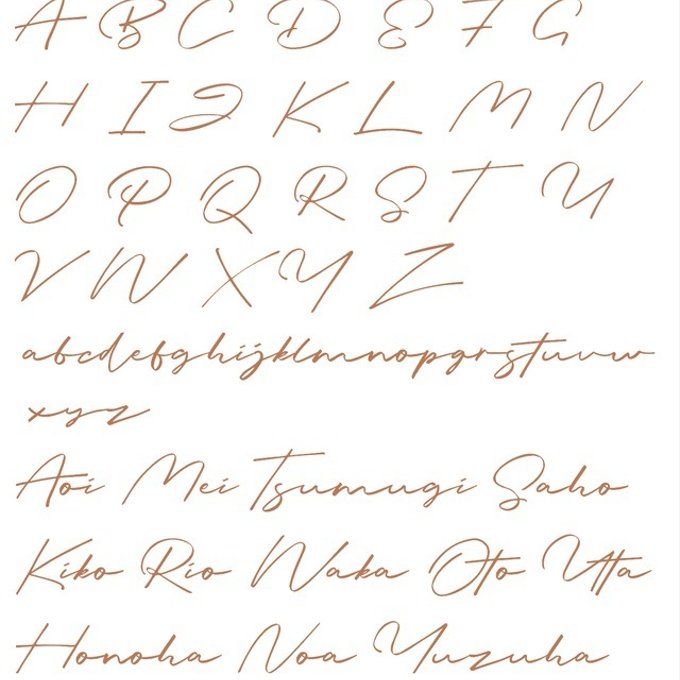 A B C D E F G
H I J K L M N
O P Q R S T U
V W X Y Z
abcdefghijklmnopqrstuvw
xyz
Aoi Mei Tsumugi Saho
Kiko Rio Waka Oto Utta
Honoha Noa Yuzuha